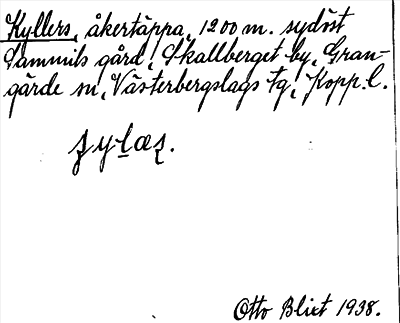 Kyllers, åkertäppa, 1200 m. sydöst
Sammils gård, Skallberget by, Gran-
gärde sn, Västerbergslags tg, Kopp. l.
Otto Blixt 1938.